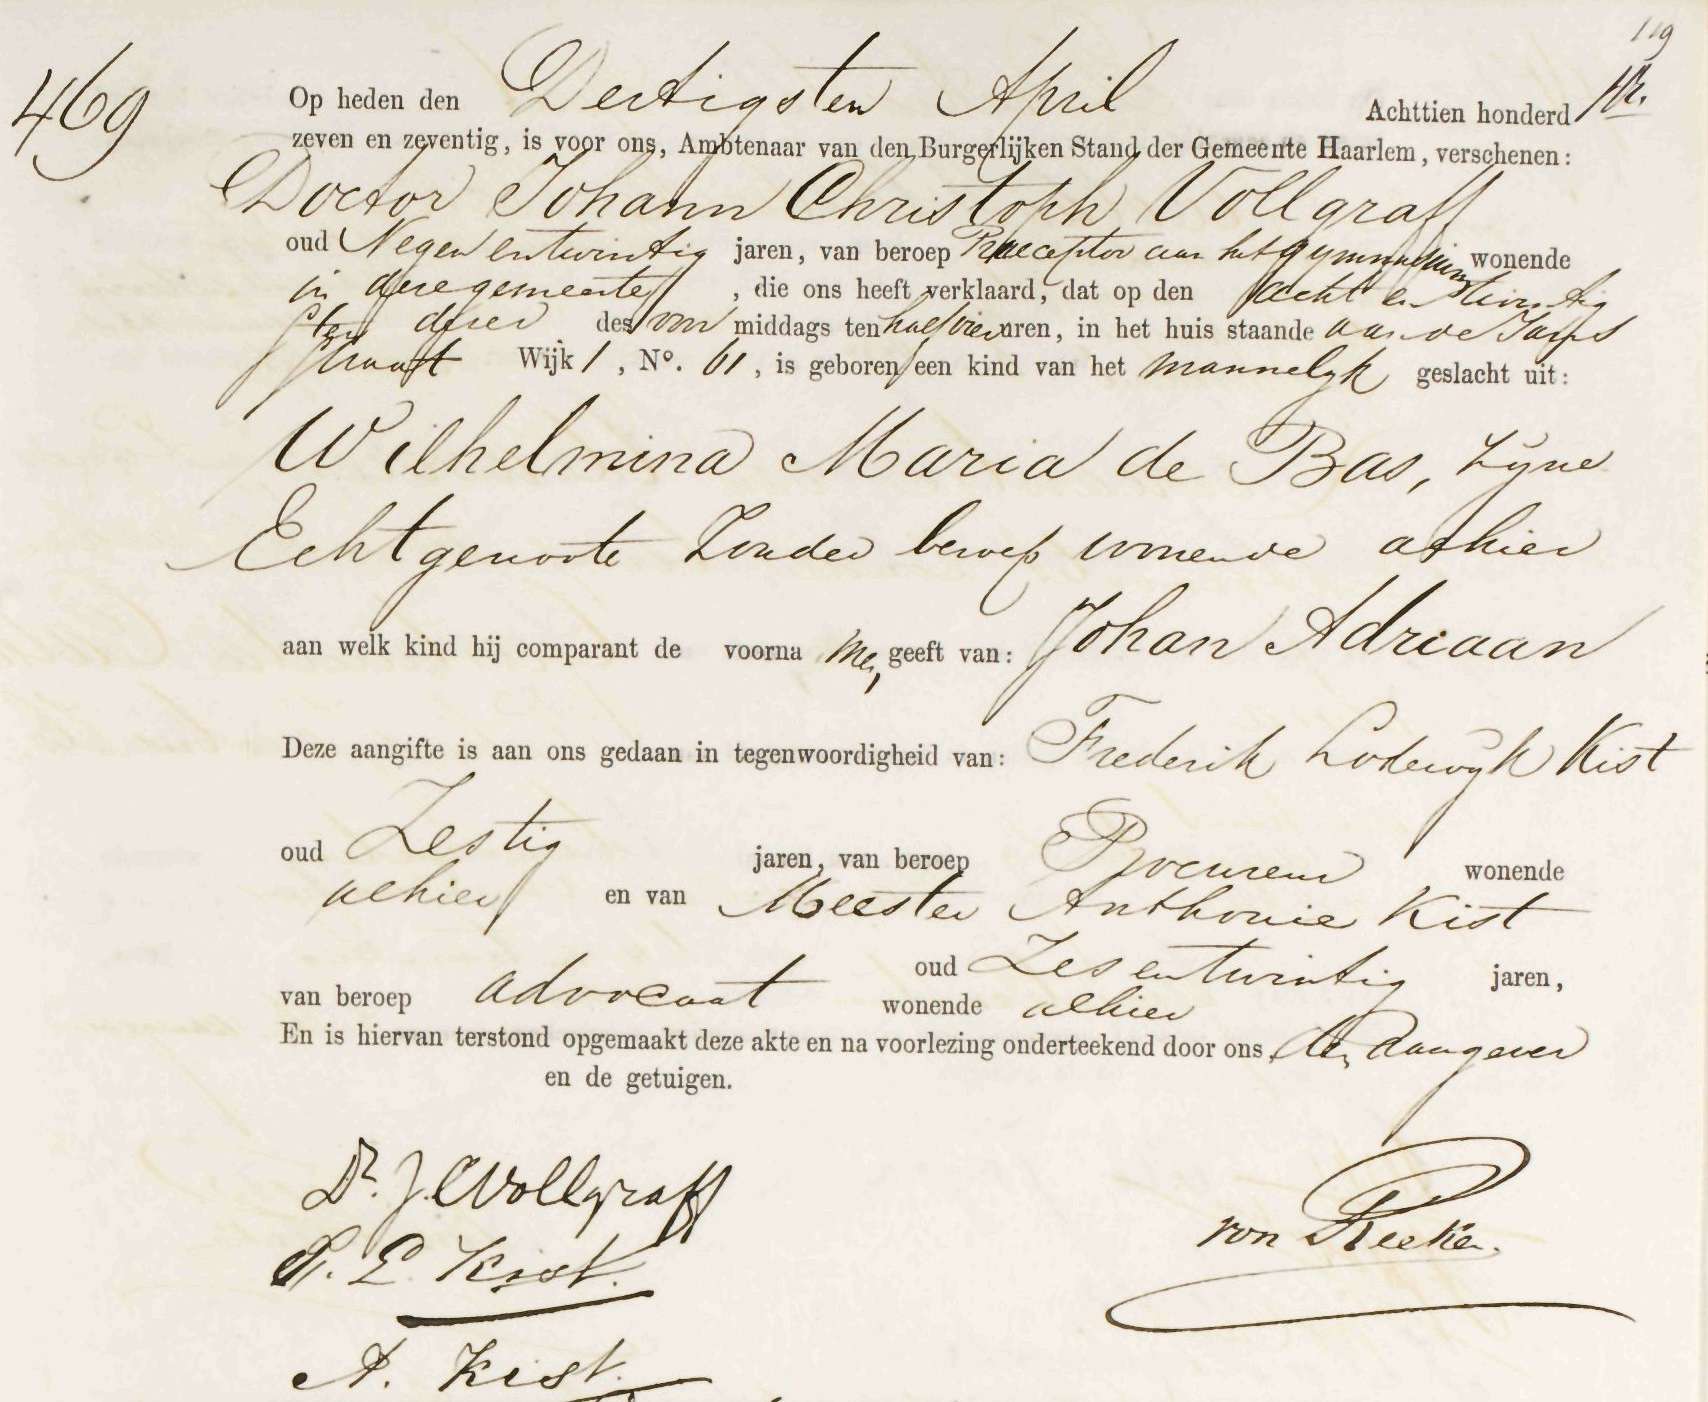 119
469
Op heden den Dertigsten April Achttien honderd
zeven en zeventig, is voor ons, Ambtenaar van den Burgerlijken Stand der Gemeente Haarlem, verschenen:
Doctor Johann Christoph Vollgraff
oud Negenentwintig jaren, van beroep Praeceptor aan het gymnasium wonende
in deze gemeente, die ons heeft verklaard, dat op den acht en twintig
sten dezer des voor middags ten half vier uren, in het huis staande aan de Jans
straat Wijk 1, No. 61, is geboren een kind van het mannelyk geslacht uit:
Wilhelmina Maria de Bas, zyne
Echtgenoote Zonder beroep wonende alhier
aan welk kind hij comparant de voorna men geeft van: Johan Adriaan
Deze aangifte is aan ons gedaan in tegenwoordigheid van: Frederik Lodewyk Kist
oud Zestig jaren, van beroep Procureur wonende
alhier en van Meester Anthonie Kist
oud Zesentwintig jaren,
van beroep advocaat wonende alhier
En is hiervan terstond opgemaakt deze akte en na voorlezing onderteekend door ons, den Aangever
en de getuigen.
Dr. J. C Vollgraff
von
F. L. Kist.
A. Kist.